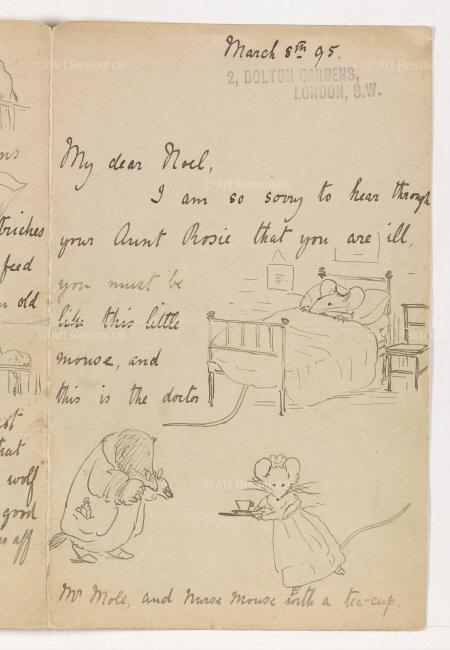 March 8th 95.
2, BOLTON GARDENS,
LONDON, S.W.
My dear Noel,
I am so sorry to hear through
your Aunt Rosie that you are ill,
you must be
like this little
mouse, and
this is the doctor
Mr Mole, and Nurse Mouse with a tea-cup.
ns
triches
feed
old
wolf
good
aff
Art Resource